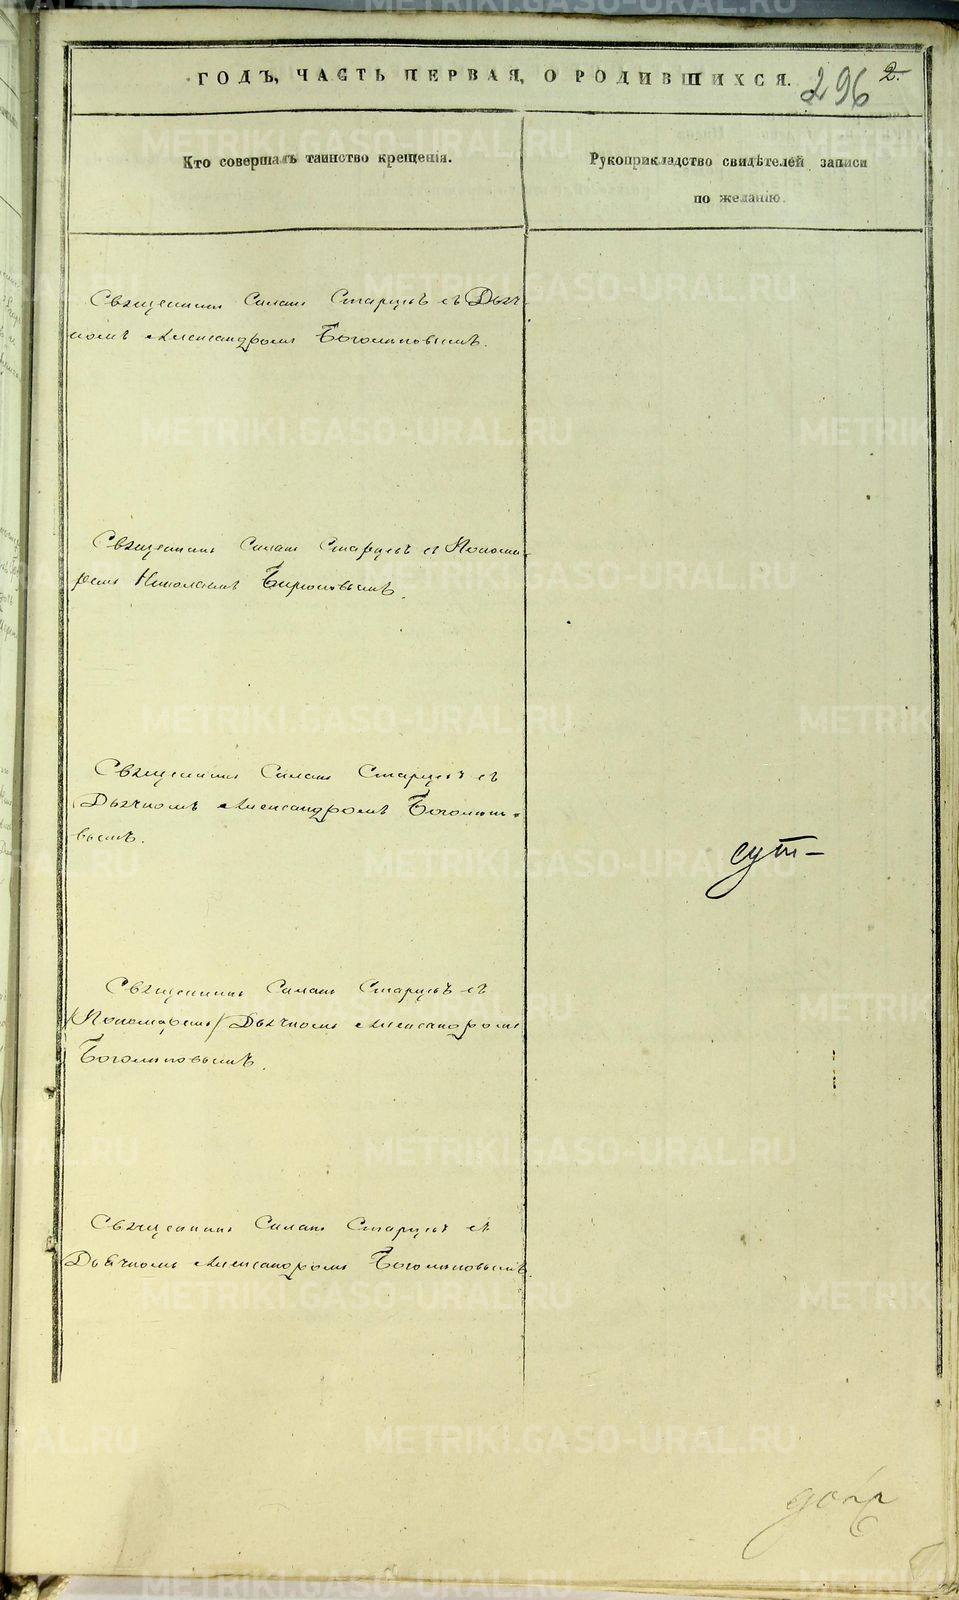 ГОДЪ, ЧАСТЬ ПЕРВАЯ, О РОДИВШИХСЯ.
296 2.
Кто совершалъ таинство крещенія.
Рукоприкладство свидѣтелей записи
по желанію.
Священникъ Симонъ Старцевъ съ Дьяч-
комъ Александромъ Боголиповымъ.
Священникъ Симонъ Старцевъ съ Понома-
ремъ Николаемъ
Священникъ Симонъ Старцевъ съ
Дьячкомъ Александромъ Боголипо-
вымъ.
сут-
Священникъ Симонъ Старцевъ съ
/Пономаремъ/ Дьячкомъ Александромъ
Боголиповымъ.
Священникъ Симонъ Старцевъ съ
Дьячкомъ Александромъ Боголиповымъ.
METRIKI.GASO-URAL.RU